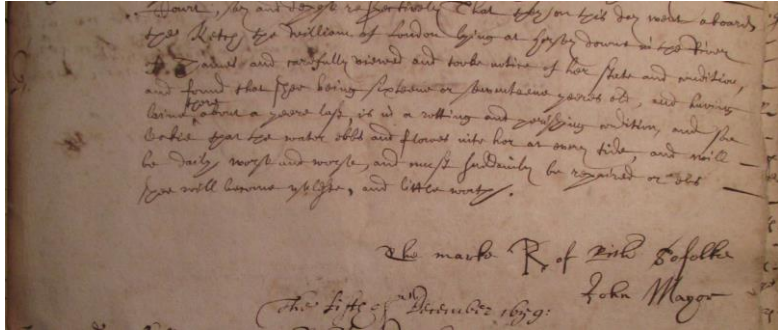 Court, say and depose respectively That they on this day went aboard
the Ketch the William of London lying at horsey downe in the River
of Thames and carefully viewed and tooke notice of her state and condition,
and found that shee being sixteene or seaventeene yeeres old, and having
leine there about a yeere last, is in a rotting and perishing condition, and soe
leakie that the water ebbs and flowes into her at every tide, and will
be daily worse and worse, and must suddainly be repaired or els
shee will become uselesse, and little worth.
The marke R. of Rich Sofolke
John Mayor
The fifth of December 1659: